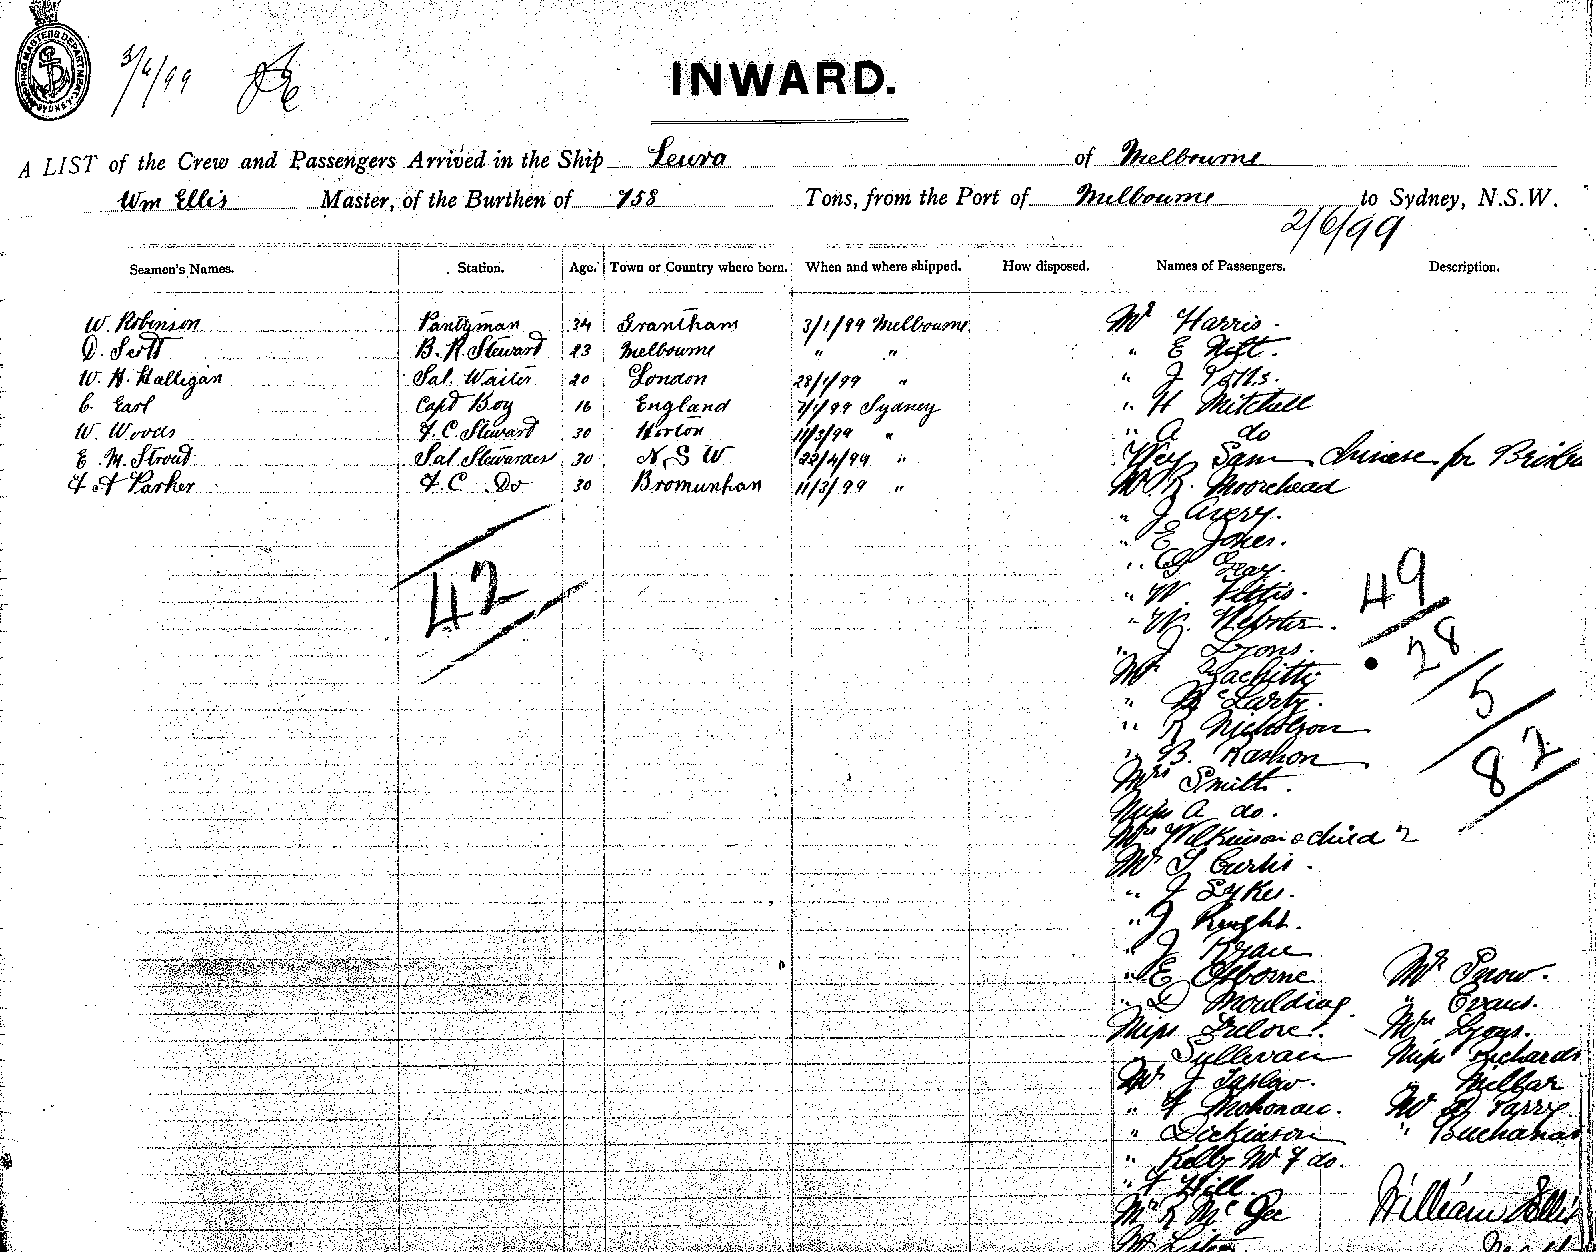 3/6/99
INWARD.
A LIST of the Crew and Passengers Arrived in the Ship Leura of Melbourne
Wm Ellis Master, of the Burthen of 758 Tons, from the Port of Melbourne to Sydney, N.S.W.
2/6/99
Seamen's Names. Station. Age. Town or Country where born. When and where shipped. How disposed. Names of Passengers. Description.
W. Robinson Pantryman 34 Grantham 3/1/99 Melbourne Mr Harris.
D. Scott B. R. Steward 23 Melbourne " " " E
W. H. Halligan Sal. Waiter 20 London 28/1/99 " " J
C. Earl Capt Boy 16 England 7/1/99 Sydney " H Mitchell
W. Woods F. C. Steward 30 Horton 11/3/99 " " A do
E. M. Stroud Sal Stewardess 30 N S W 22/4/99 " Sam Chinese for
F A Parker F. C. Do 30 11/3/99 " Mr R. Moorehead
" J Avery.
" E Jones.
42
" G Gray.
49
" W
" W. Webster.
28
" J Lyons.
Mr
5
" McLarty.
" R Nicholson
82
" B.
Mrs Smith.
Miss A do.
Mrs Wilkinson & child 2
Mr S Curtis.
" J Sykes.
" J Knight.
" J Ryan
" E Osborne Mr Snow.
" D Moulding. " Evans.
Miss Mrs Lyons.
" Sullivan Miss Richards
Mr J " Millar
" F Mr Parry
" Dickinson " Buchanan
" Kelly W F do.
" J Hill.
William Ellis
Mr R McGee